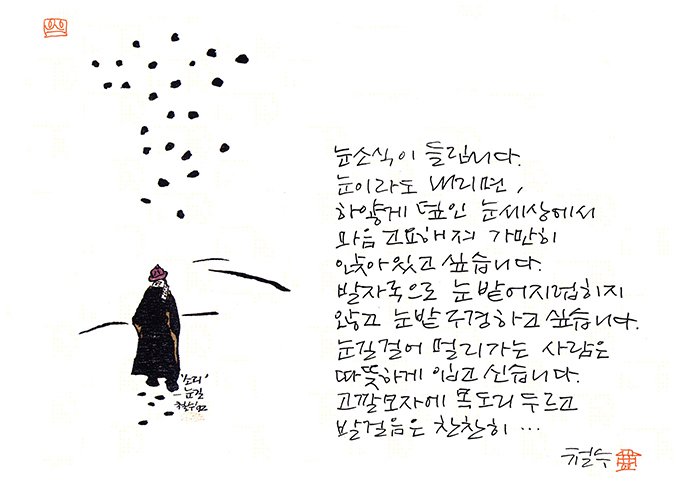 눈소식이 들립니다.
눈이라도 내리면,
하얗게 덮인 눈세상에서
마음 고요해져 가만히
앉아있고 싶습니다.
발자국으로 눈밭어지럽히지
않고 눈밭 구경하고 싶습니다.
눈길걸어 멀리가는 사람은
따뜻하게 입고 신습니다.
고깔모자에 목도리 두르고
발걸음은 찬찬히 ...
철수
"소리"
- 눈길
철수 92